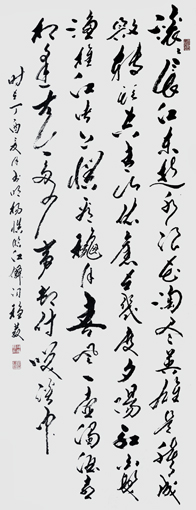 滚滚长江东逝水浪花淘尽英雄是非成
败转头空青山依旧在几度夕阳红白发
渔樵江渚上惯看秋月春风一壶浊酒喜
相逢古今多少事都付笑谈中
时在丁酉夏月书明杨慎临江仙词